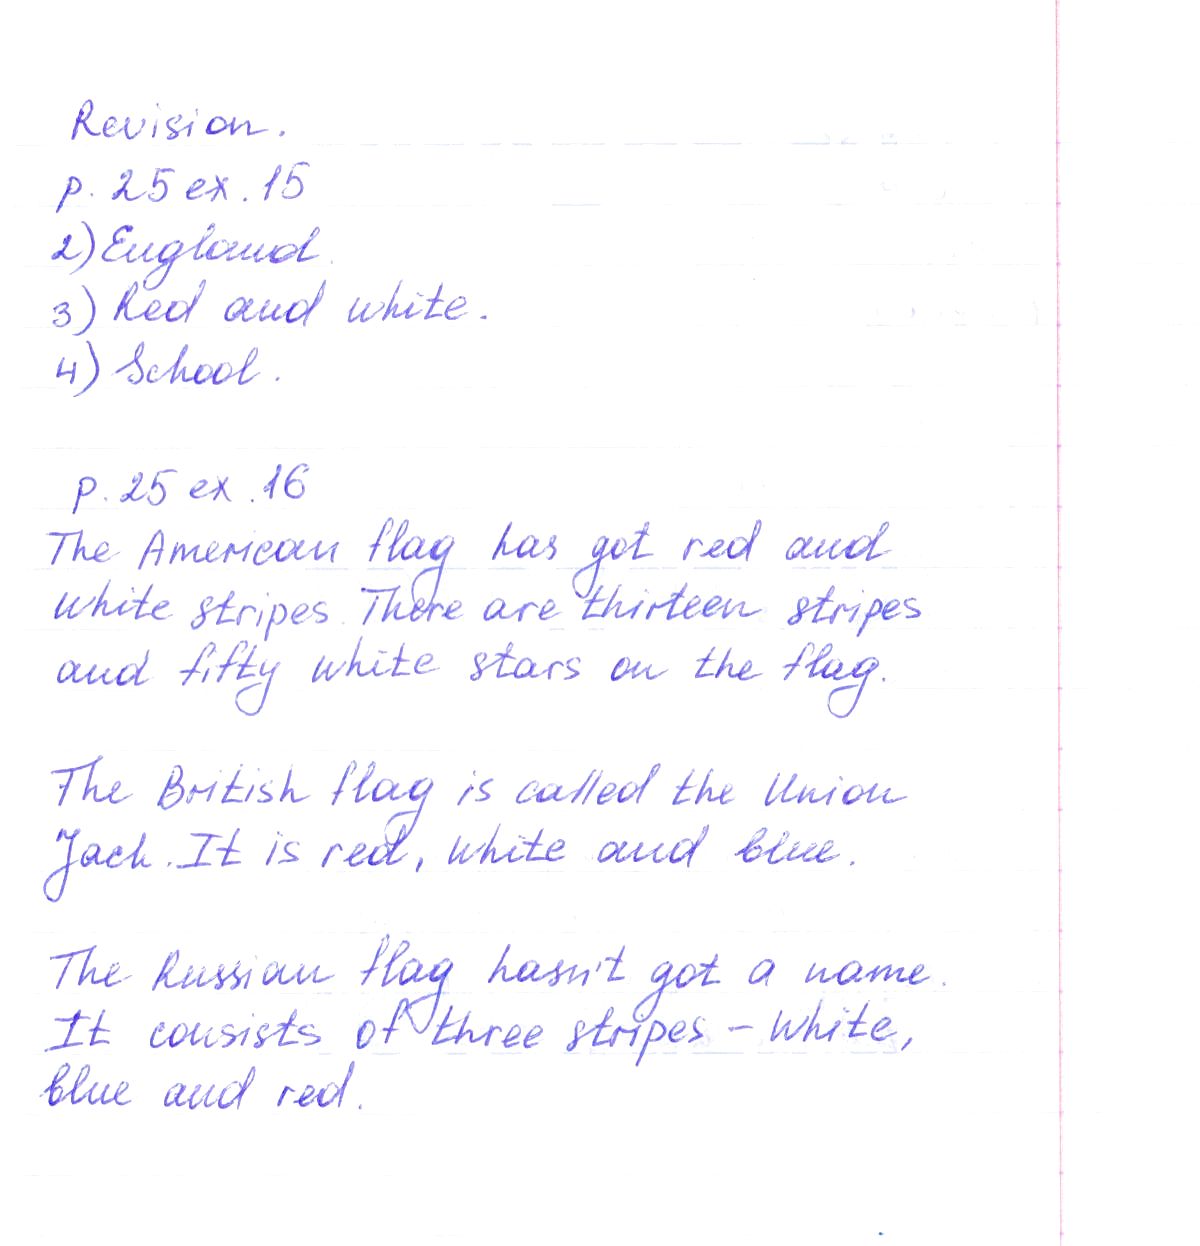 Revision.
p. 25 ex. 15
2) England.
3) Red and white.
4) School.
p. 25 ex. 16
The American flag has got red and
white stripes. There are thirteen stripes
and fifty white stars on the flag.
The British flag is called the Union
Jack. It is red, white and blue.
The Russian flag hasn't got a name.
It consists of three stripes – white,
blue and red.